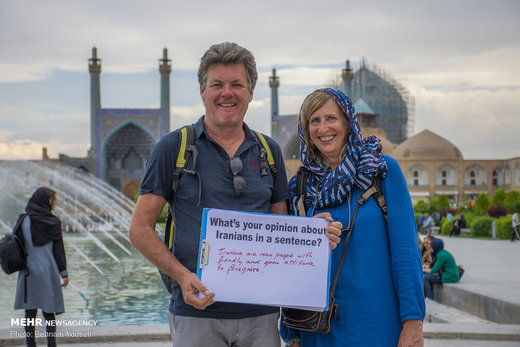 What's your opinion about
Iranians in a sentence?
Iranians are nice people with
friendly and open attitude
to foreigners
MEHR NEWSAGENCY
Photo: Behnam Yousefi